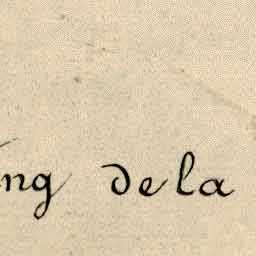 ng de la